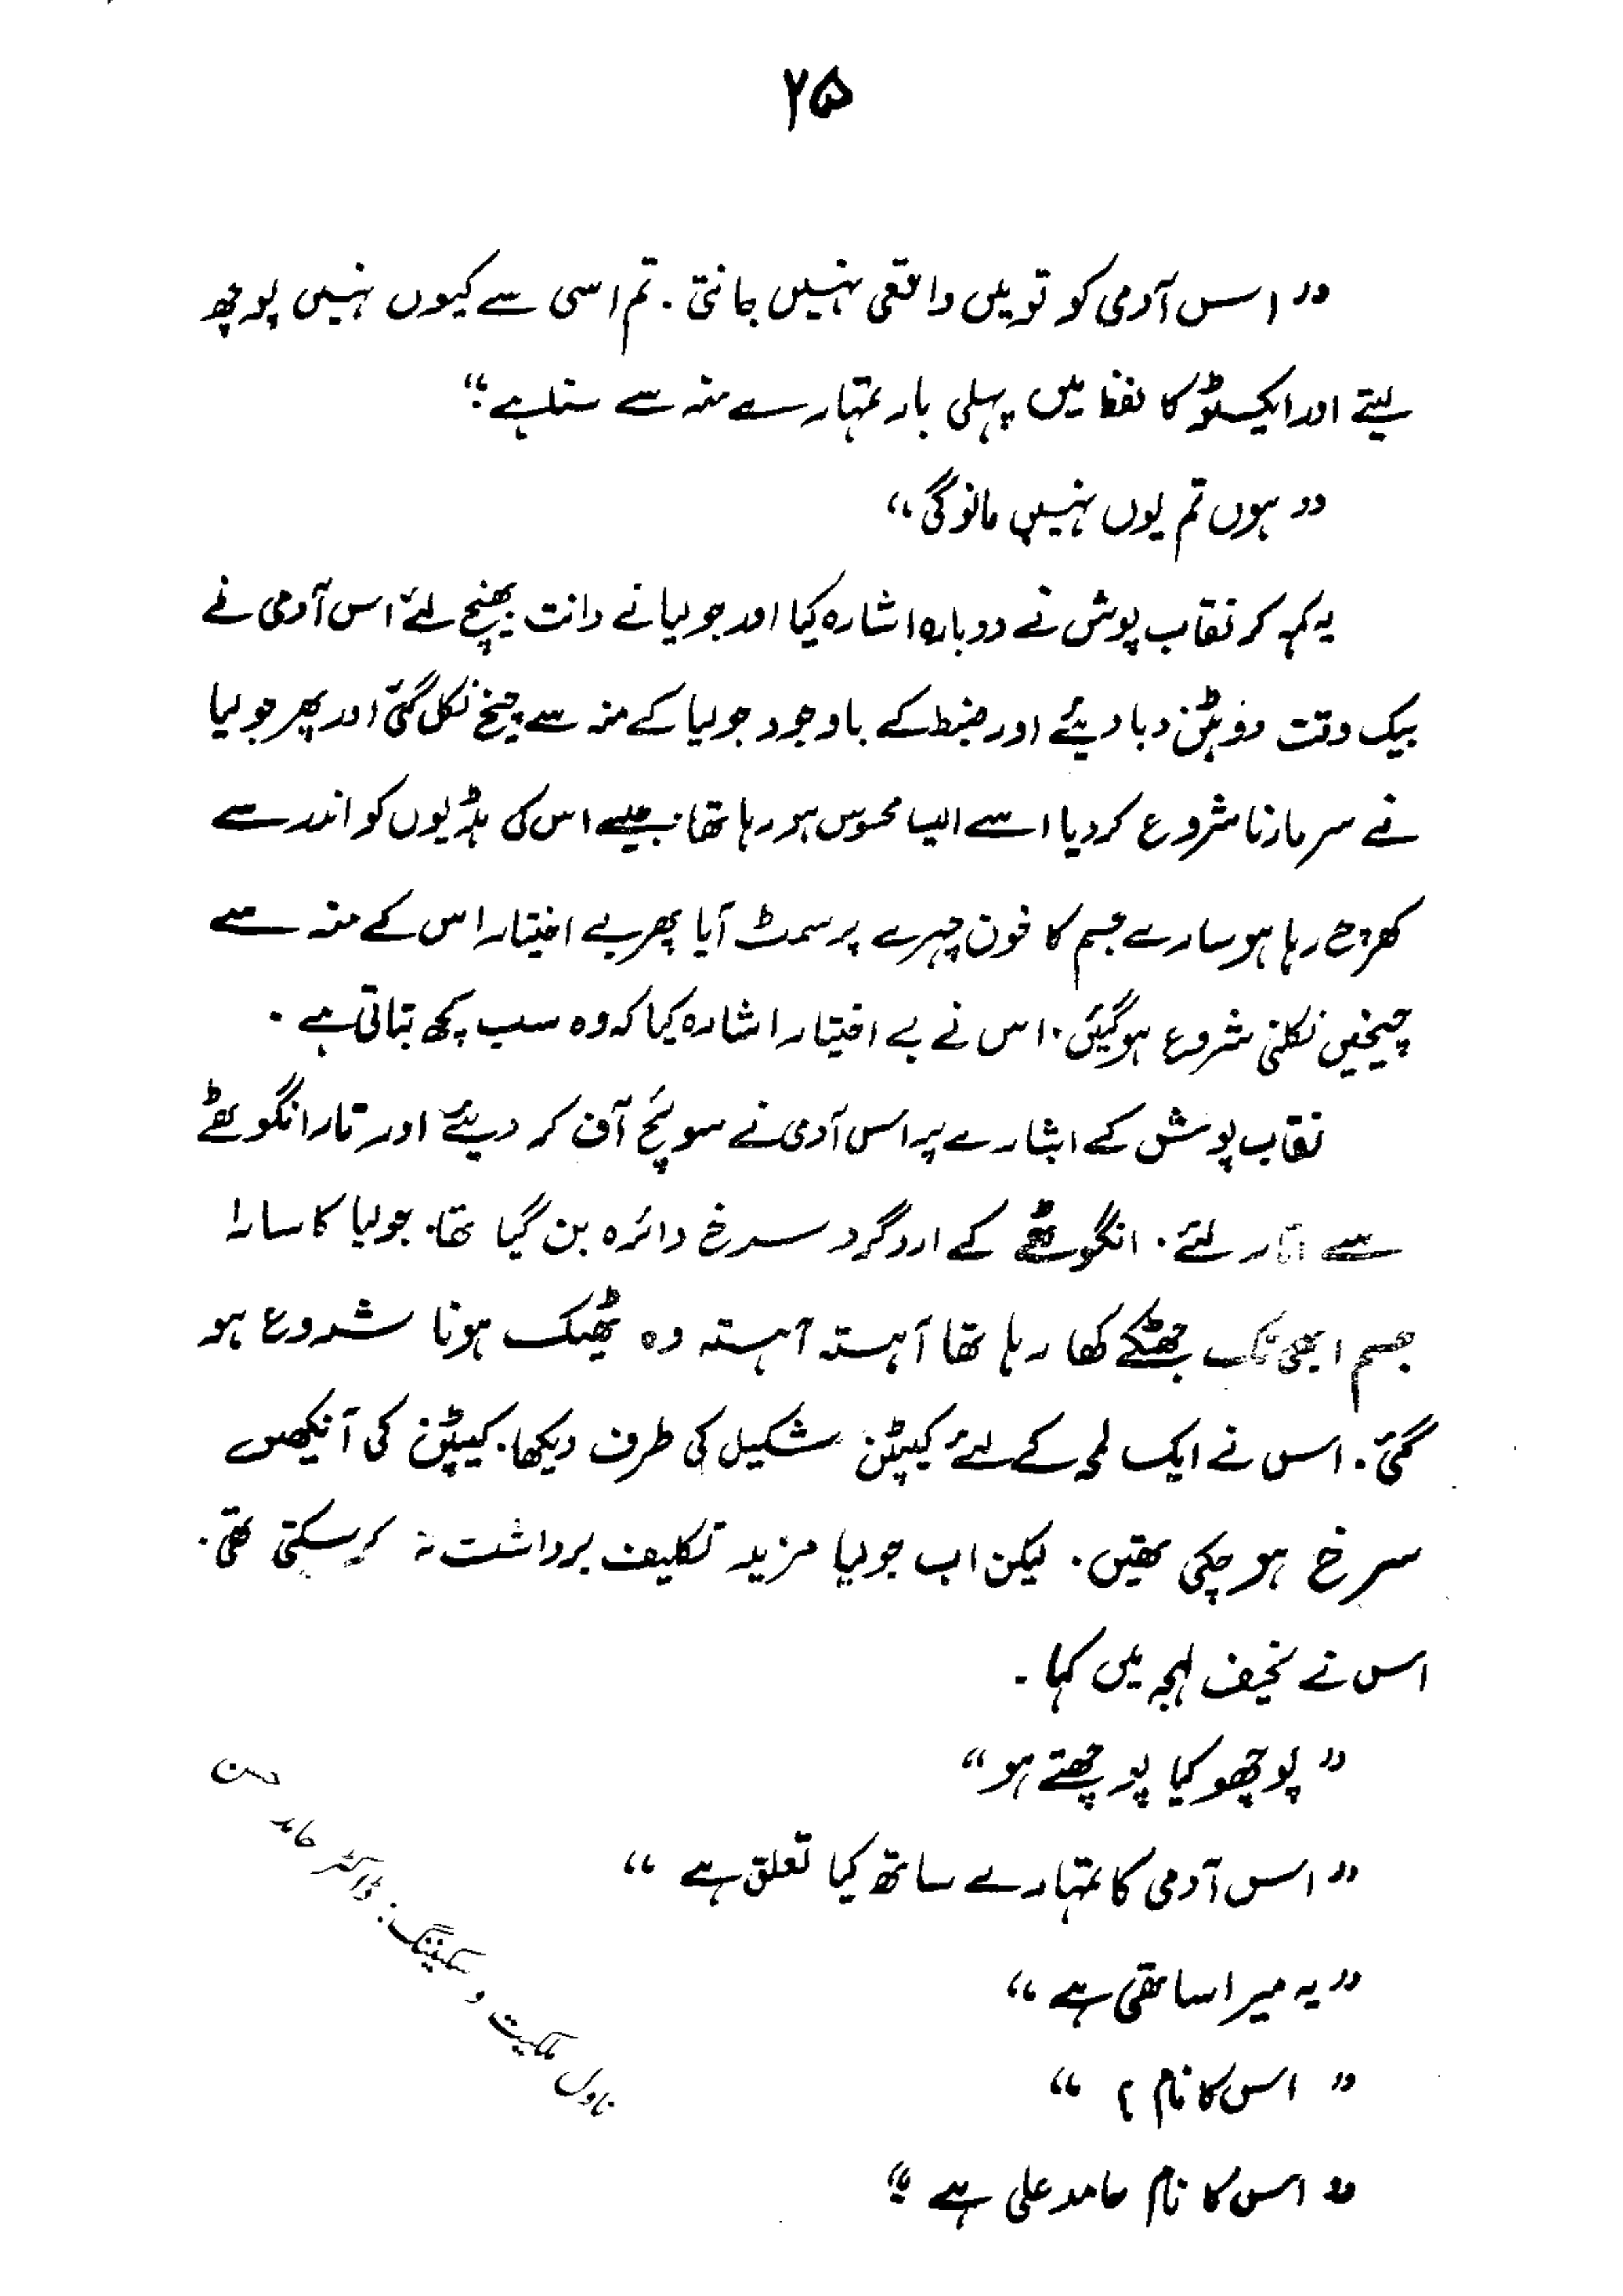 ۲۵
"اس آدمی کو تو میں واقعی نہیں جانتی۔ تم اسی سے کیوں نہیں پوچھ
لیتے اور ایکسٹو کا لفظ میں پہلی بار تمہارے منہ سے سنا ہے"
"ہوں تم یوں نہیں مانو گی"
یہ کہہ کر نقاب پوش نے دوبارہ اشارہ کیا اور جولیا نے دانت بھینچ لئے اس آدمی نے
بیک وقت دو بٹن دبا دیئے اور ضبط کے باوجود جولیا کے منہ سے چیخ نکل گئی اور پھر جولیا
نے سر مارنا شروع کر دیا اسے ایسا محسوس ہو رہا تھا جیسے اس کی ہڈیوں کو اندر سے
کھرچ رہا ہو سارے جسم کا خون چہرے پر سمٹ آیا پھر بے اختیار اس کے منہ سے
چیخیں نکلنی شروع ہو گئیں۔ اس نے بے اختیار اشارہ کیا کہ وہ سب کچھ بتاتی ہے۔
نقاب پوش کے اشارے پر اس آدمی نے سوئچ آف کر دیئے اور تار انگوٹھے
سے اتار لئے۔ انگوٹھے کے اردگرد سرخ دائرہ بن گیا تھا۔ جولیا کا سارا
جسم ابھی تک جھٹکے کھا رہا تھا آہستہ آہستہ وہ ٹھیک ہونا شروع ہو
گئی۔ اس نے ایک لمحہ کے لئے کیپٹن شکیل کی طرف دیکھا۔ کیپٹن کی آنکھیں
سرخ ہو چکی تھیں۔ لیکن اب جولیا مزید تکلیف برداشت نہ کر سکتی تھی۔
اس نے نحیف لہجہ میں کہا۔
"پوچھو کیا پوچھتے ہو"
"اس آدمی کا تمہارے ساتھ کیا تعلق ہے"
"یہ میرا ساتھی ہے"
"اس کا نام ؟"
"اس کا نام حامد علی ہے"
ناول ملکیت و سکیننگ: ڈاکٹر حامد حسن